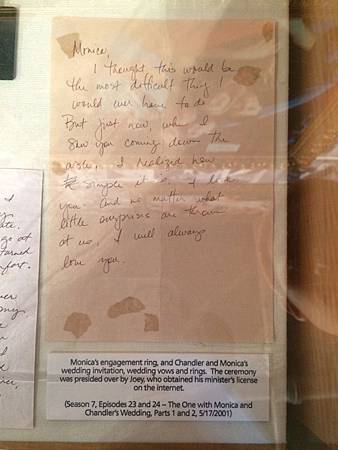 Monica,
I thought this would be
the most difficult thing I
would ever have to do.
But just now, when I
saw you coming down the
aisle, I realized how
simple it is. I love
you. And no matter what
little surprises are thrown
at us, I will always
love you.
Monica's engagement ring, and Chandler and Monica's
wedding invitation, wedding vows and rings. The ceremony
was presided over by Joey, who obtained his minister's license
on the internet.
(Season 7, Episodes 23 and 24 – The One with Monica and
Chandler's Wedding, Parts 1 and 2, 5/17/2001)